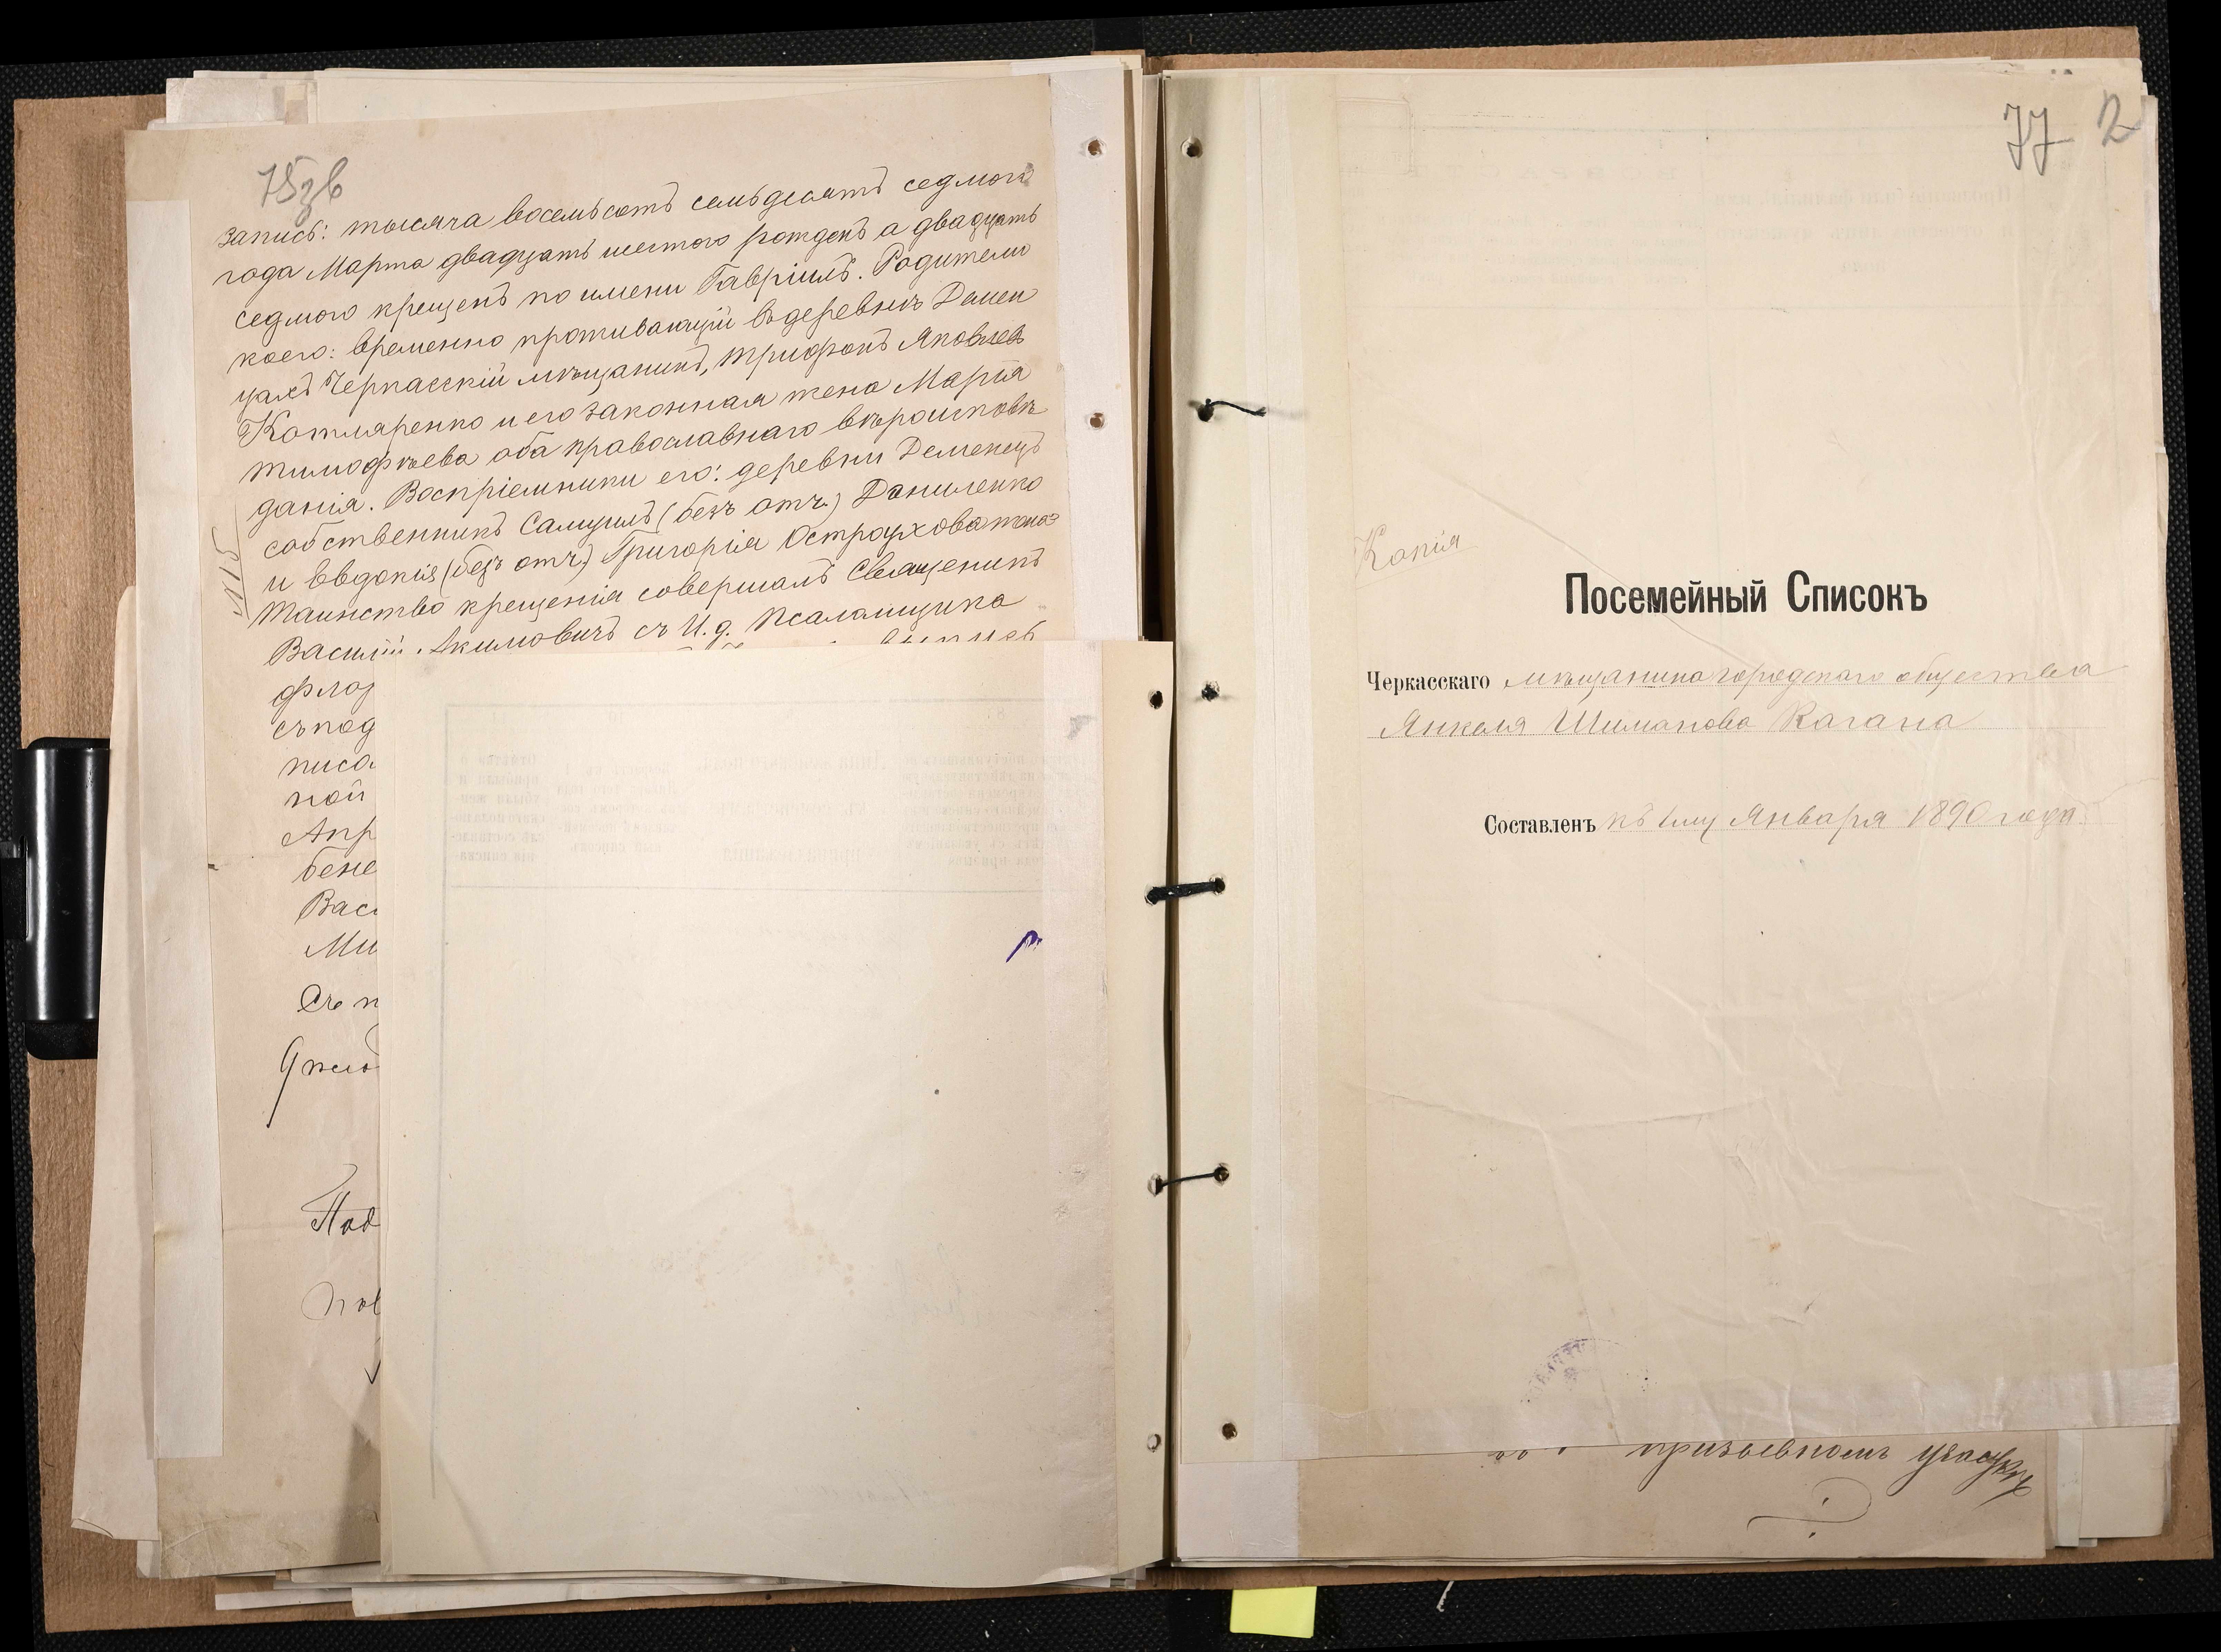 75зв
запись: тысяча восемьсотъ семьдесятъ седмого
года Марта двадцять шестого рожденъ а двадцять
седмого крещенъ по имени Гавріилъ. Родители
коего: временно проживающій въ деревнѣ Демен
цахъ Черкасскій мѣщанинъ, Трифонъ Яковлевъ
Котляренко и его законная жена Марія
Тимофѣева оба православнаго вѣроисповѣ
данія. Воспріемники его: деревни Деменецъ
собственникъ Самуилъ (безъ отч.) Даниленко
и Евдокія (безъ отч.) Григорія Остроухова жена
Таинство крещенія совершалъ Священикъ
Василій Акимовичъ съ И. д. Псаломщика
№15
съ под
писа
ной
Апр
бене
Вас
Ми
Съ п
Под
77 2
Копія
Посемейный Списокъ
Черкасскаго мѣщанина городскаго общества
Янкеля Шиманова Кагана
Составленъ къ 1му Января 1890 года.
призывномъ участкѣ